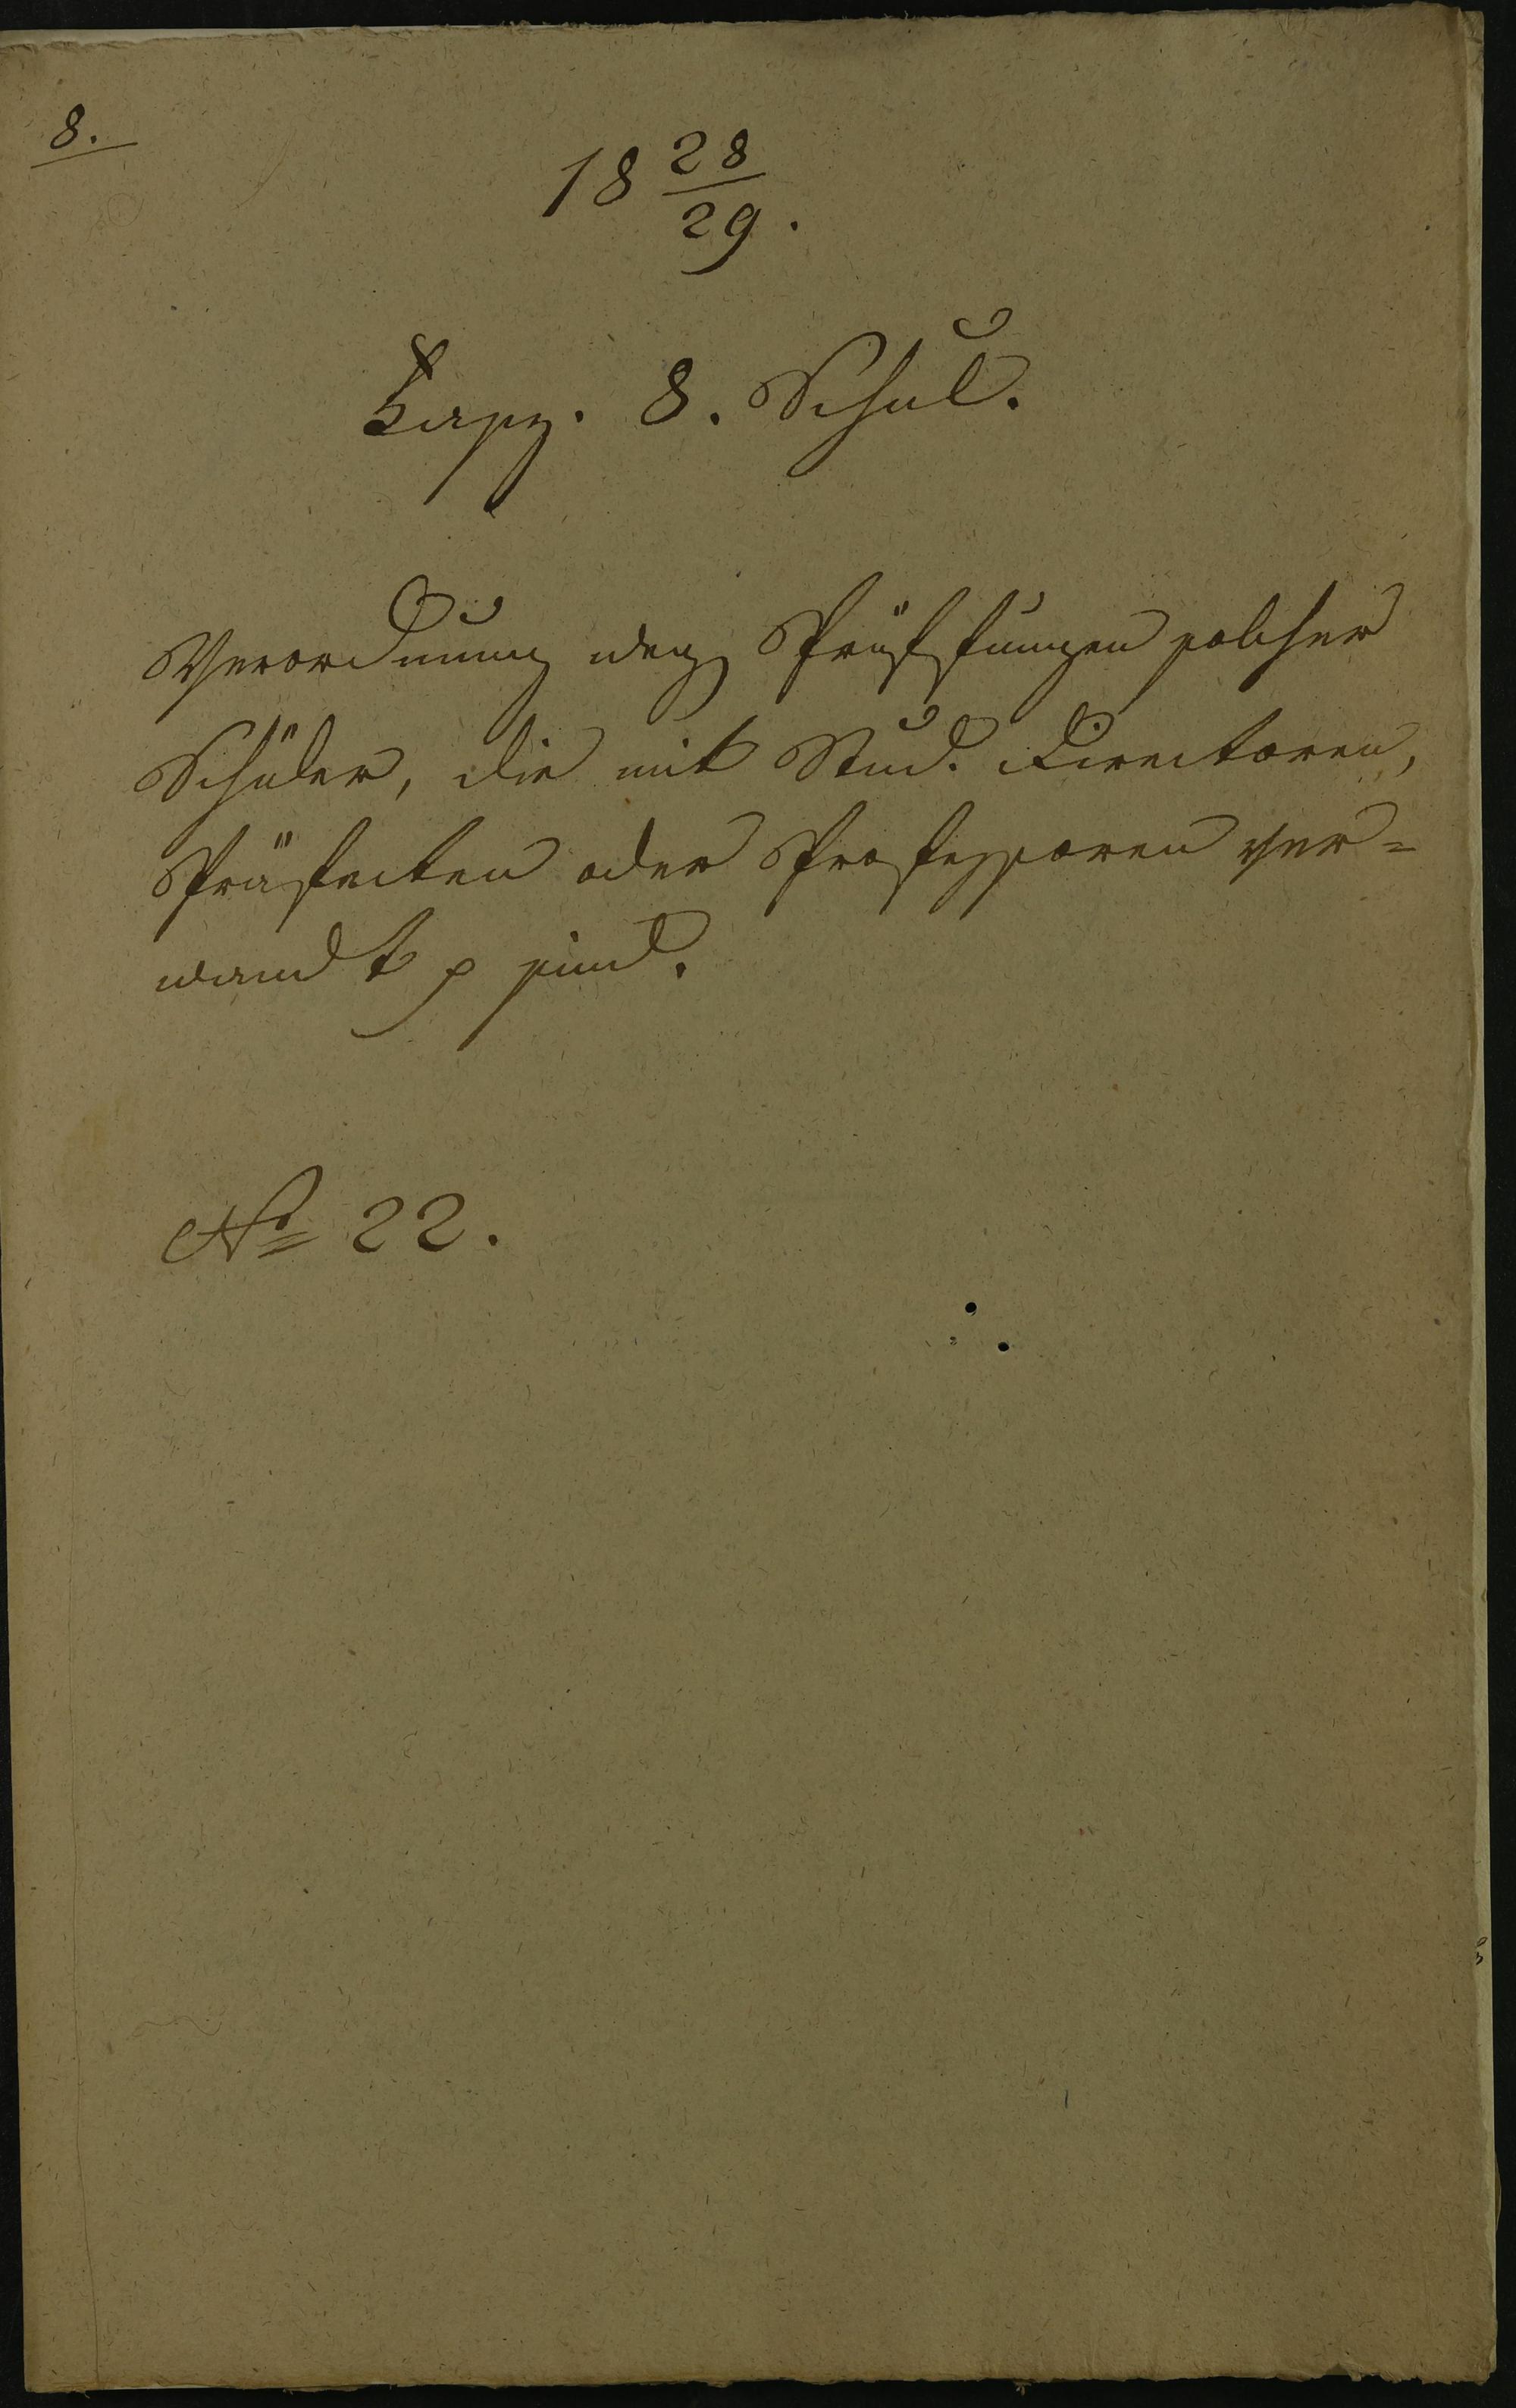 8.
18 28/29.
Fasz. 8. Schul.
Verordnung weg. Prüffungen solcher
Schüler, die mit Stud. Directoren,
Präfecten oder Professoren ver=
wandt p sind.
No 22.